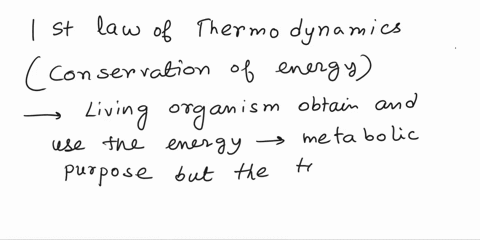 1 st law of Thermodynamics
(Conservation of energy)
→ Living organism obtain and
use the energy → metabolic
purpose but the